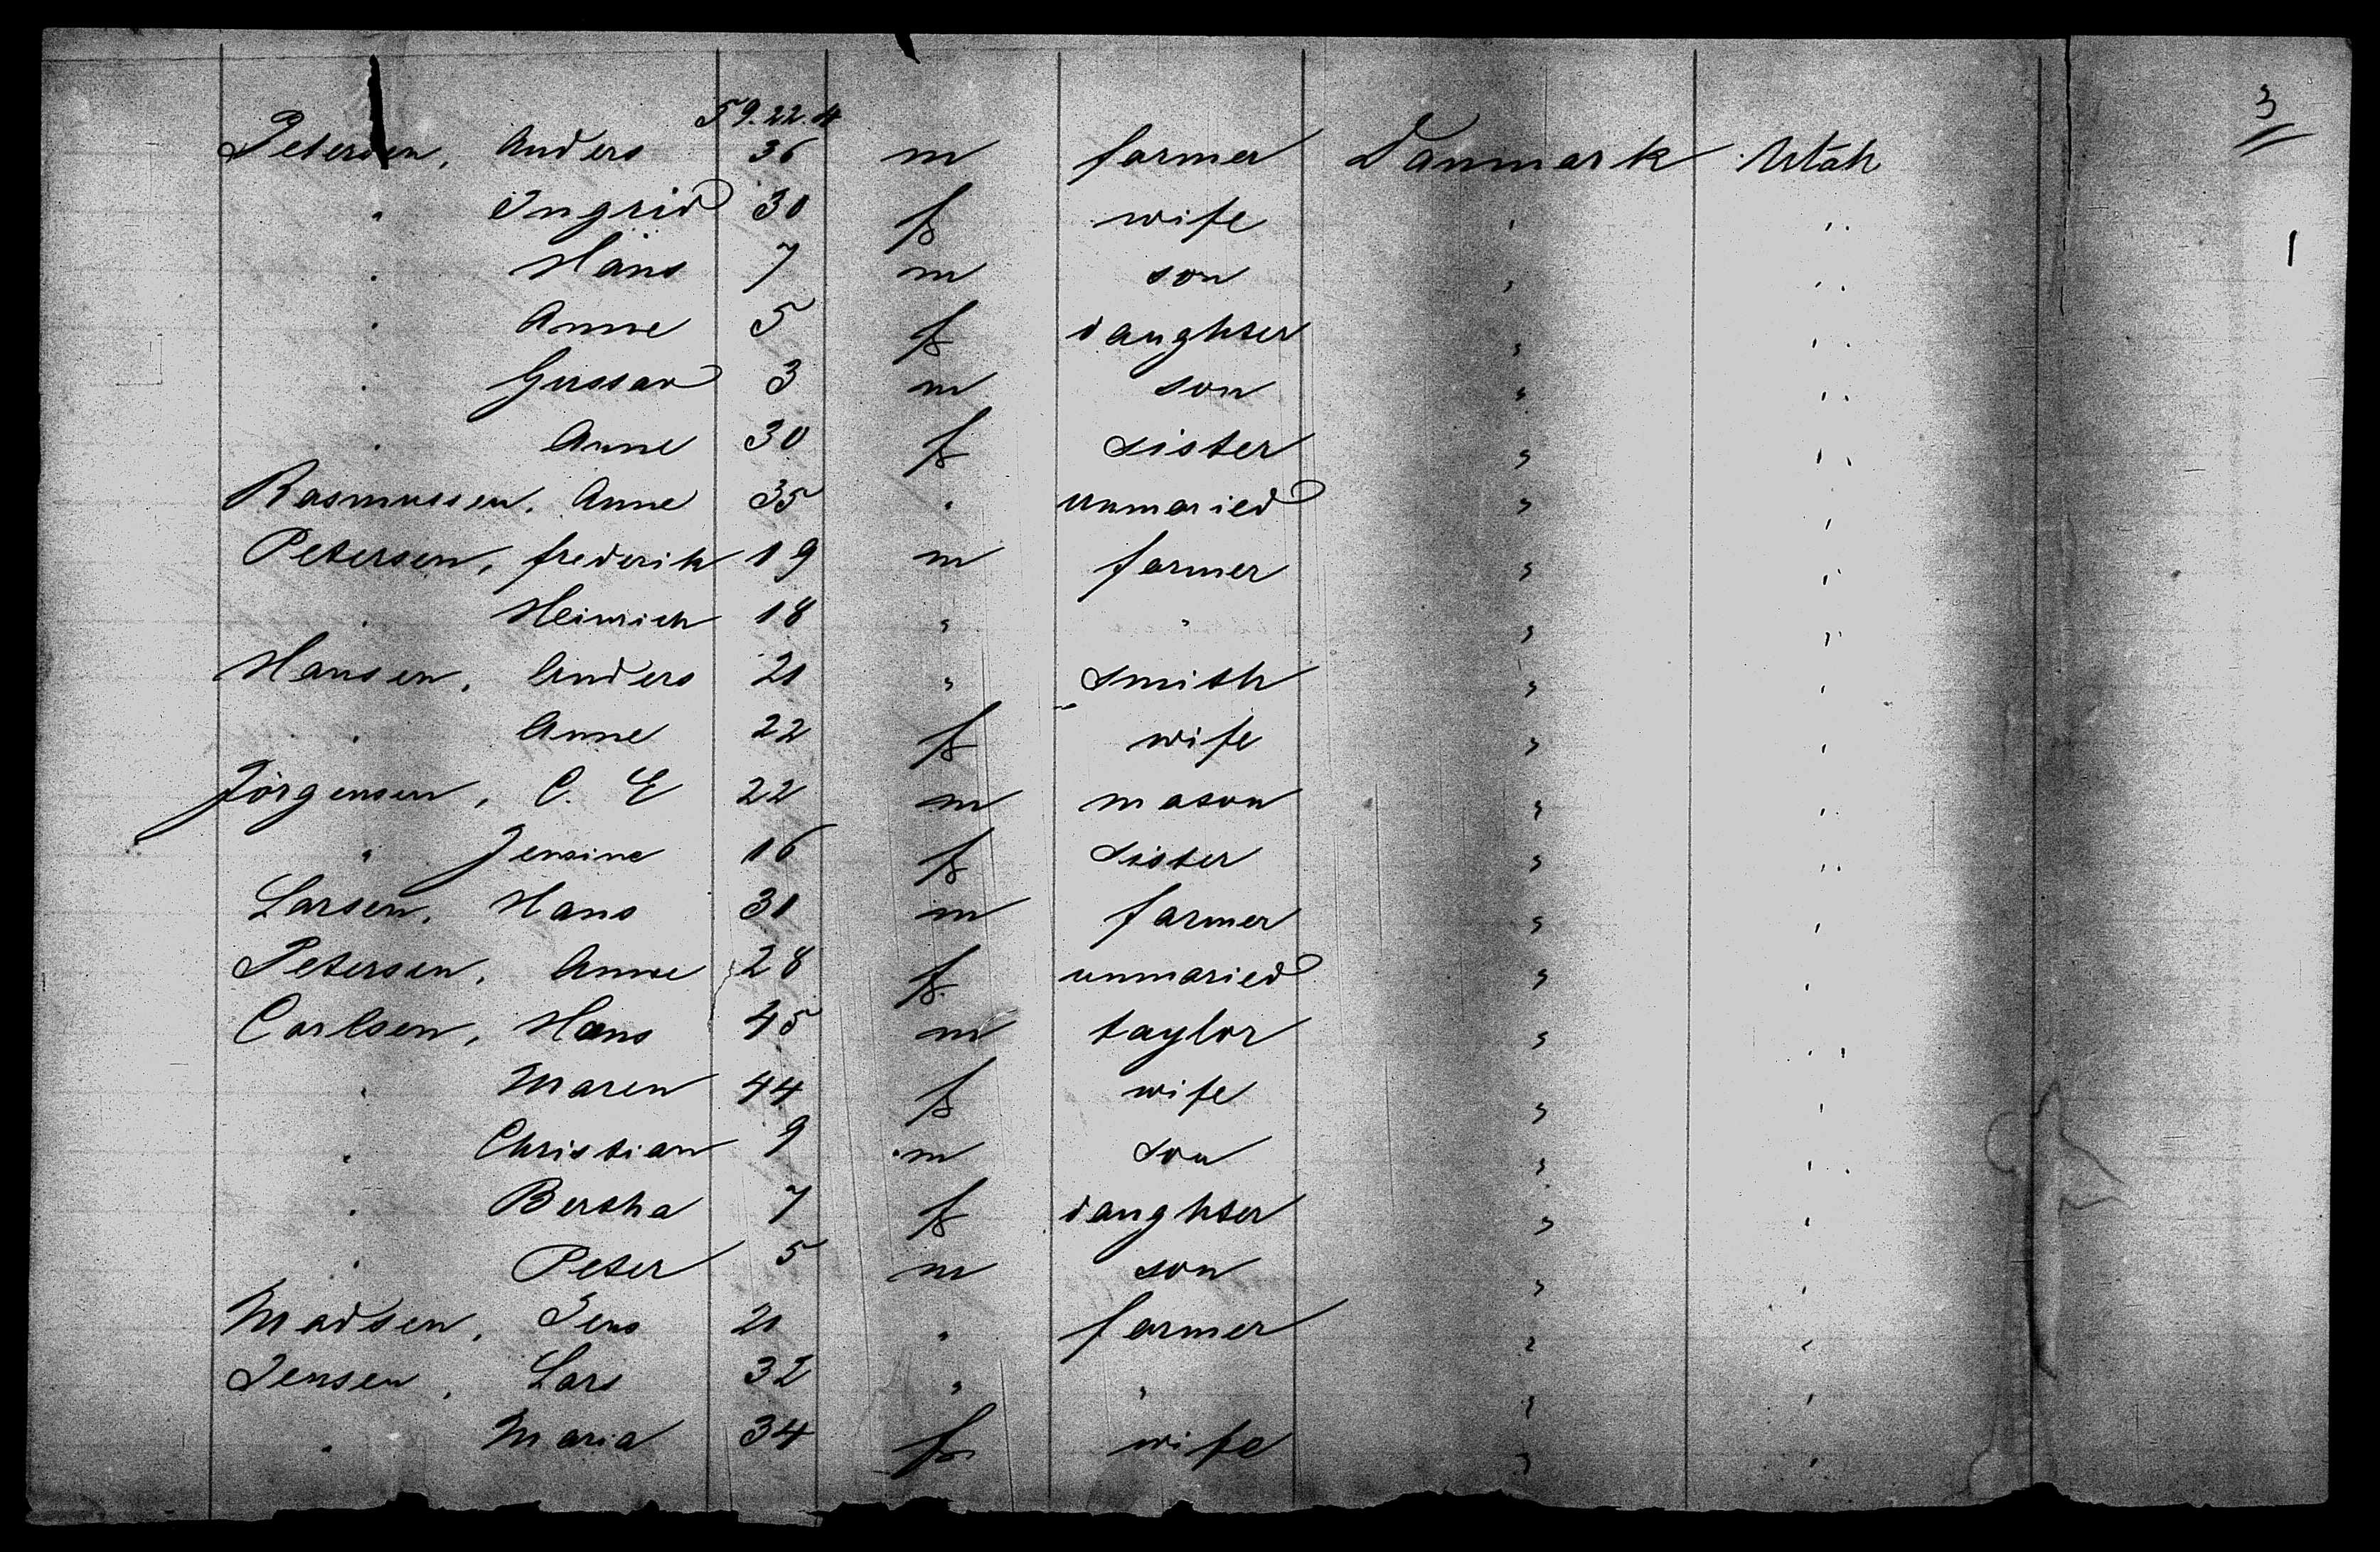 59.22.4
3
Petersen, Anders 36 m farmer Danmark Utah
" Ingrid 30 f wife " "
" Hans 7 m son " "
" Anne 5 f daughter " "
" Gustav 3 m son " "
" Anne 30 f sister " "
Rasmussen, Anne 35 " unmaried " "
Petersen, frederik 19 m farmer " "
" Heinrich 18 " " " "
Hansen, Anders 21 " smith " "
" Anne 22 f wife " "
Jörgensen, C. E 22 m mason " "
" Jensine 16 f sister " "
Larsen, Hans 31 m farmer " "
Petersen, Anne 28 f unmaried " "
Carlsen, Hans 45 m taylor " "
" Maren 44 f wife " "
" Christian 9 m son " "
" Bertha 7 f daughter " "
" Peter 5 m son " "
Madsen, Jens 21 " farmer " "
Jensen, Lars 32 " " " "
" Maria 34 f wife " "